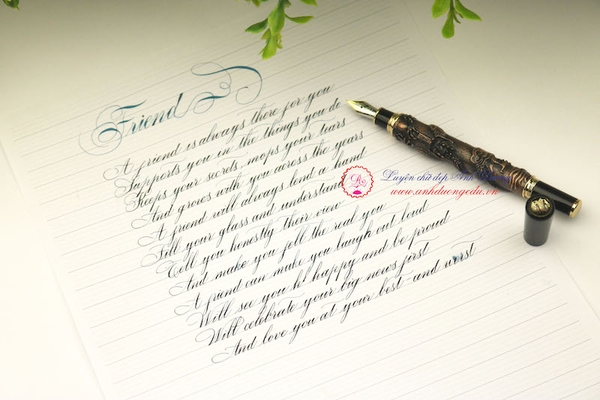 Friend
A friend is always there for you
Supports you in the things you do
Keeps your secrets, mops your tears
And grows with you across the years
A friend will always lend a hand
Fill your glass and understand
Tell you honestly their view
And make you feel the real you
A friend can make you laugh out loud
Will see you happy and be proud
Will celebrate your big news first
And love you at your best and worst
Luyện chữ đẹp Ánh Dương
www.anhduongedu.vn